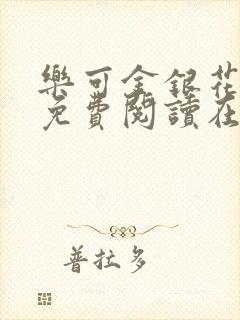 樂可金銀花
免費閱讀在
普拉多